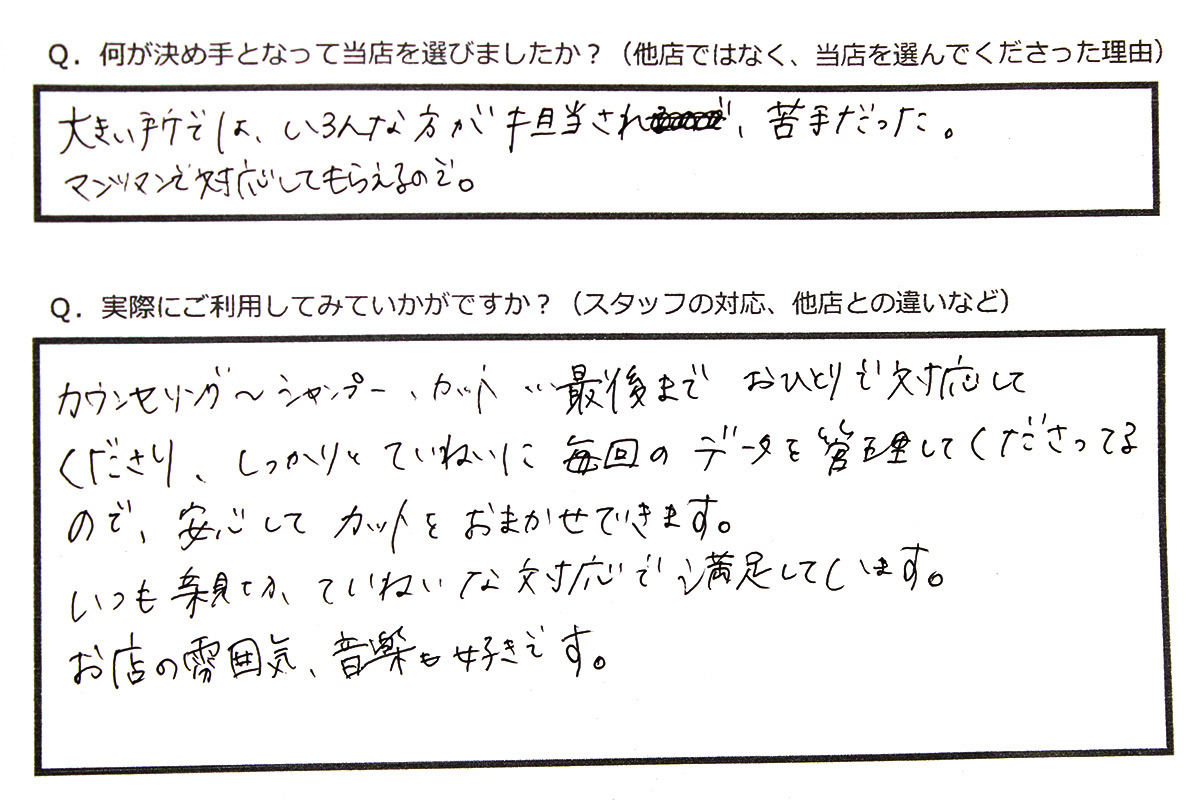 Q．何が決め手となって当店を選びましたか？（他店ではなく、当店を選んでくださった理由）
大きい所では、いろんな方が担当され、苦手だった。
マンツマンで対応してもらえるので。
Q．実際にご利用してみていかがですか？（スタッフの対応、他店との違いなど）
カウンセリング〜シャンプー、カット…最後まで おひとりで対応して
くださり、しっかりと ていねいに 毎回の データを管理してくださってる
ので、安心して カットを おまかせできます。
いつも親切、ていねいな対応で満足しています。
お店の雰囲気、音楽も好きです。